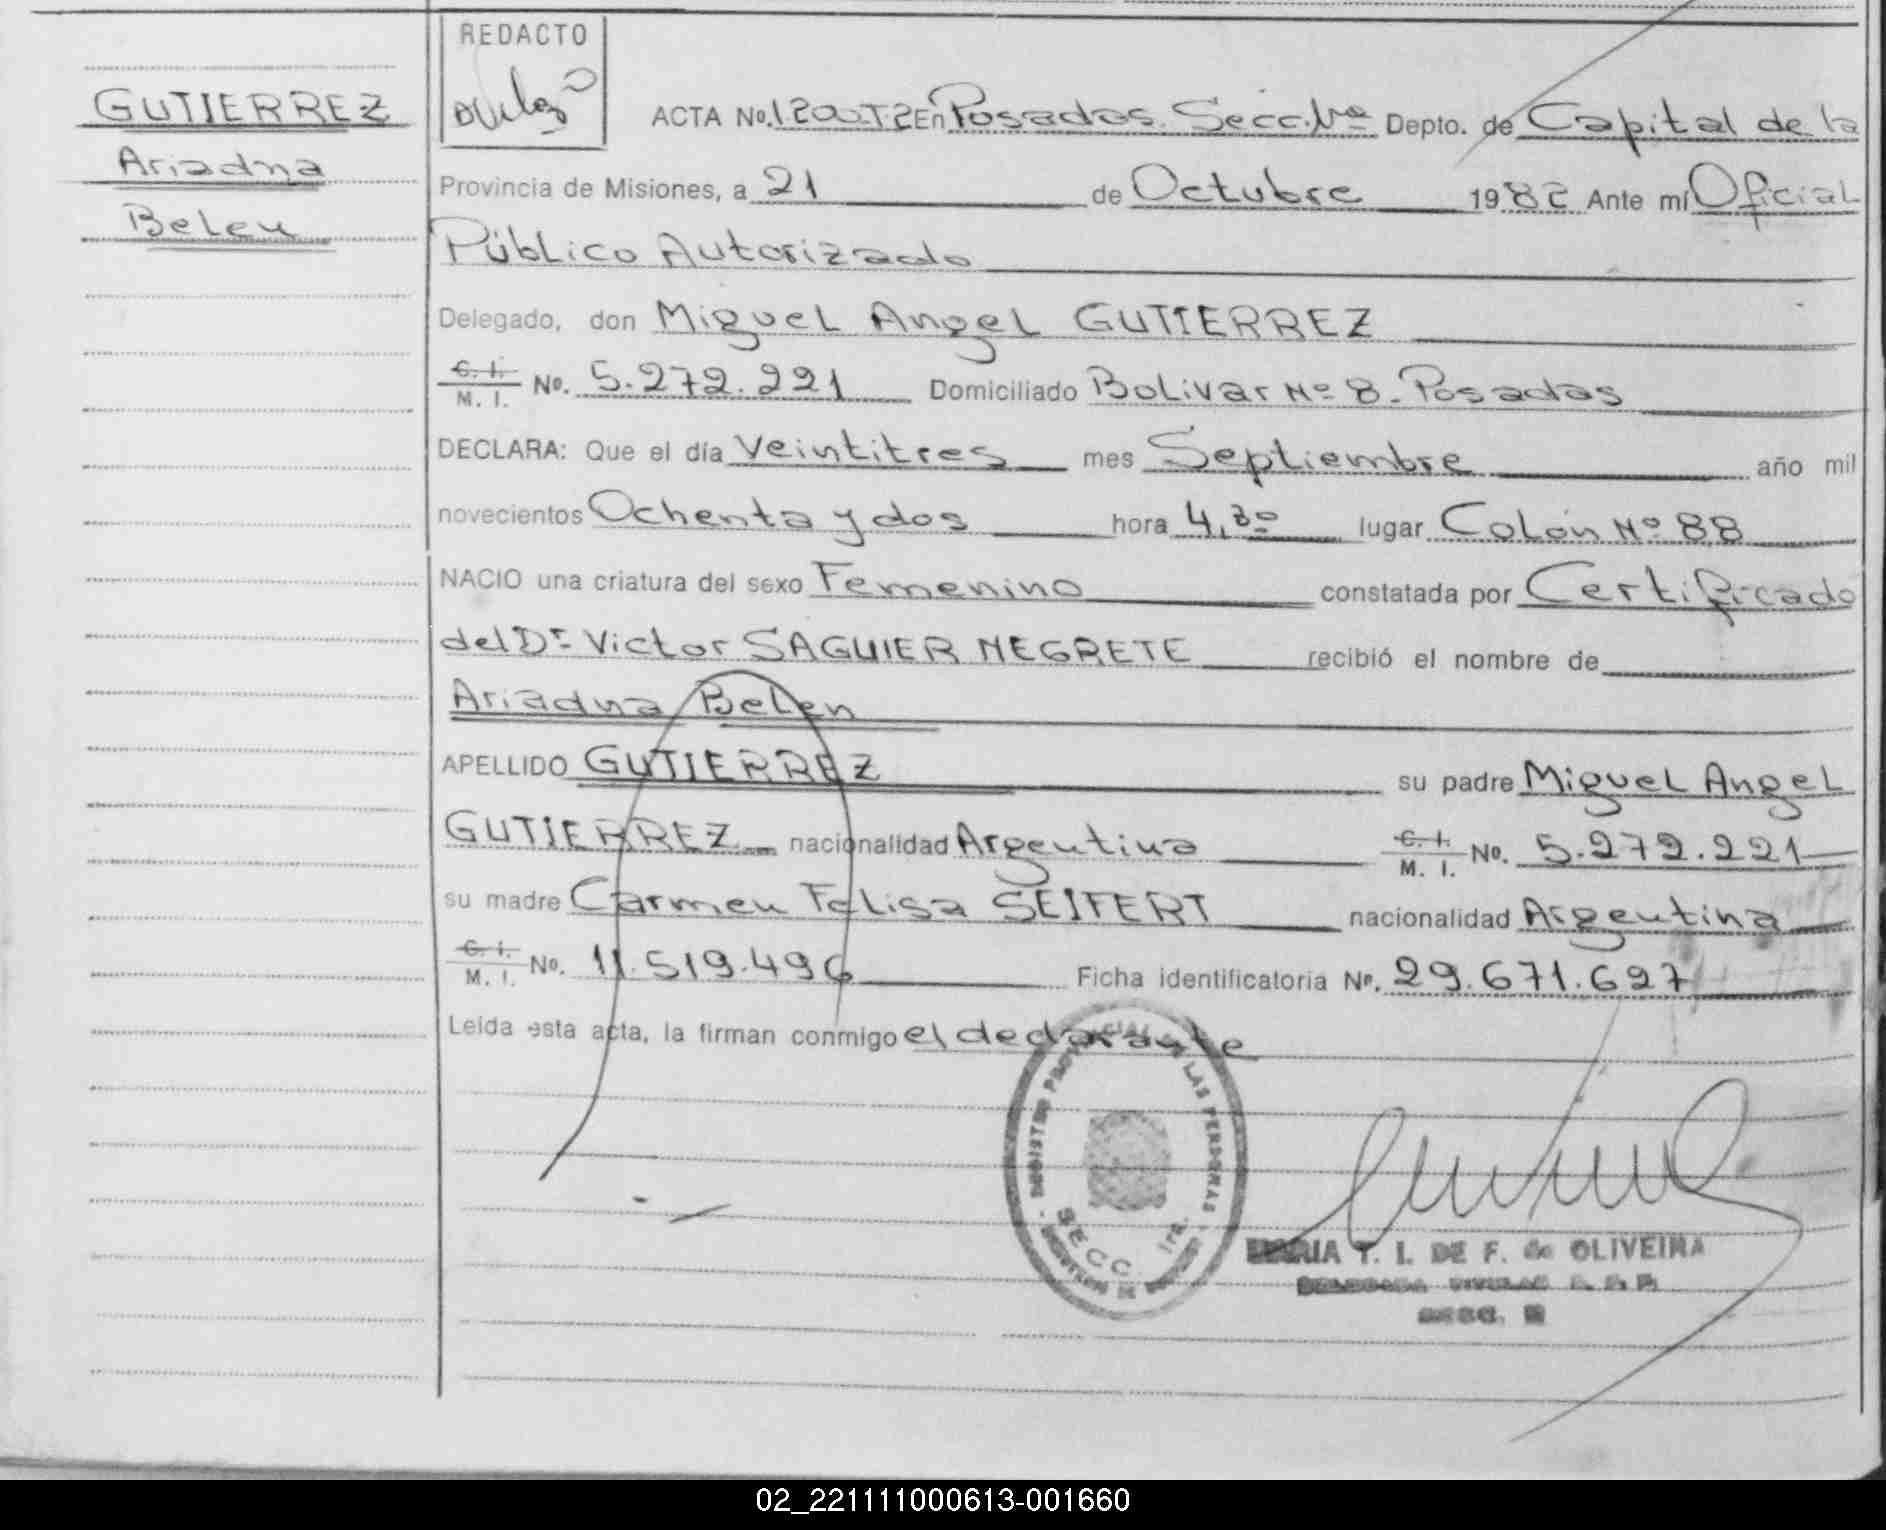 REDACTO
GUTIERREZ
Ariadna
Belen
ACTA No. 1200 T2 En Posadas. Secc. 1ra Depto. de Capital de la
Provincia de Misiones, a 21 de Octubre 1982 Ante mí Oficial
Público Autorizado
Delegado, don Miguel Angel GUTIERREZ
C. I. M. I. No. 5.272.221 Domiciliado Bolivar Nº 8. Posadas
DECLARA: Que el día Veintitres mes Septiembre año mil
novecientos Ochenta y dos hora 4,30 lugar Colón Nº 88
NACIO una criatura del sexo Femenino constatada por Certificado
del Dr. Victor SAGUIER NEGRETE recibió el nombre de
Ariadna Belen
APELLIDO GUTIERREZ su padre Miguel Angel
GUTIERREZ nacionalidad Argentina C. I. M. I. No. 5.272.221
su madre Carmen Felisa SEIFERT nacionalidad Argentina
C. I. M. I. No. 11.519.496 Ficha identificatoria No. 29.671.627
Leída esta acta, la firman conmigo el declarante
LAS PERSONAS
SECC. 1ra.
MARIA T. I. DE F. de OLIVEIRA
02_221111000613-001660